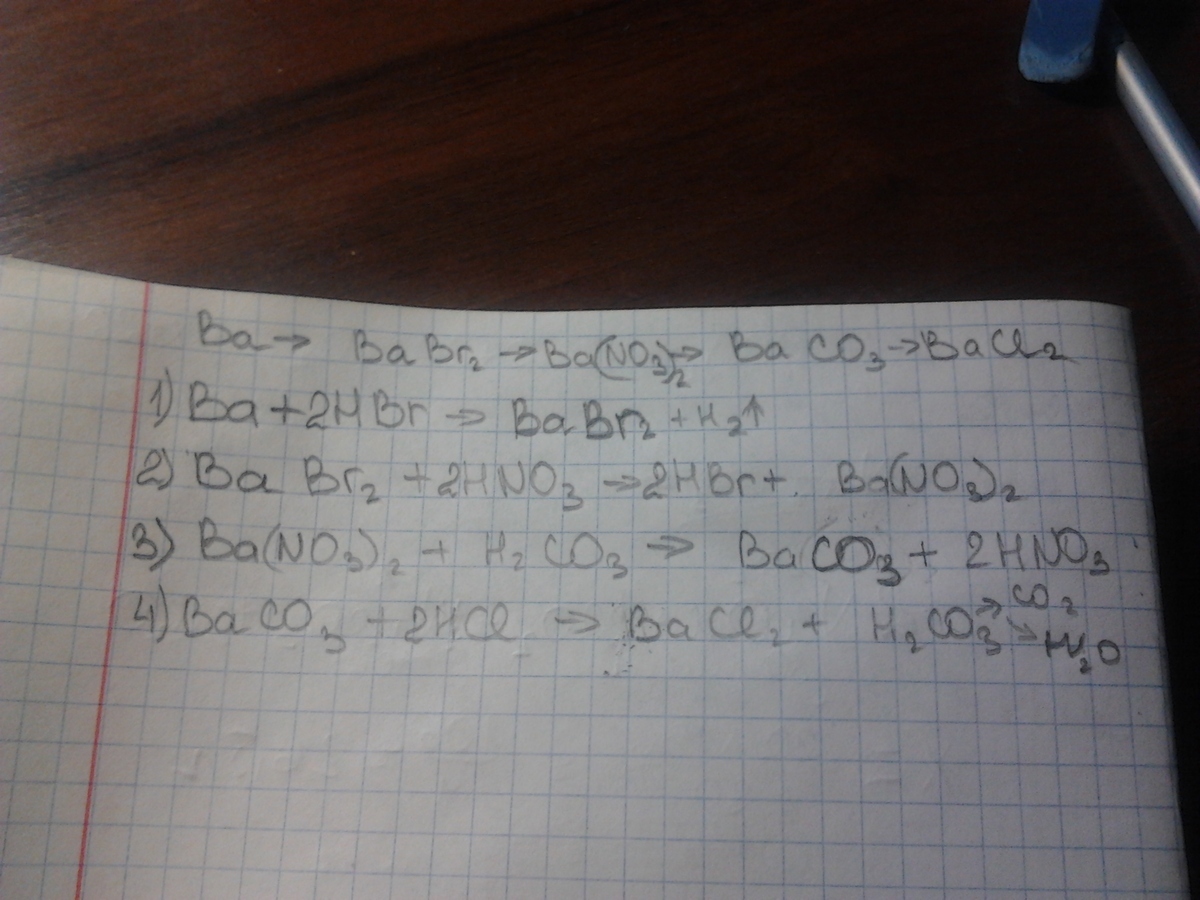 Ba → BaBr₂ → Ba(NO₃)₂ → BaCO₃ → BaCl₂
1) Ba + 2HBr → BaBr₂ + H₂↑
2) BaBr₂ + 2HNO₃ → 2HBr + Ba(NO₃)₂
3) Ba(NO₃)₂ + H₂CO₃ → BaCO₃ + 2HNO₃
4) BaCO₃ + 2HCl → BaCl₂ + H₂CO₃ → CO₂
→ H₂O